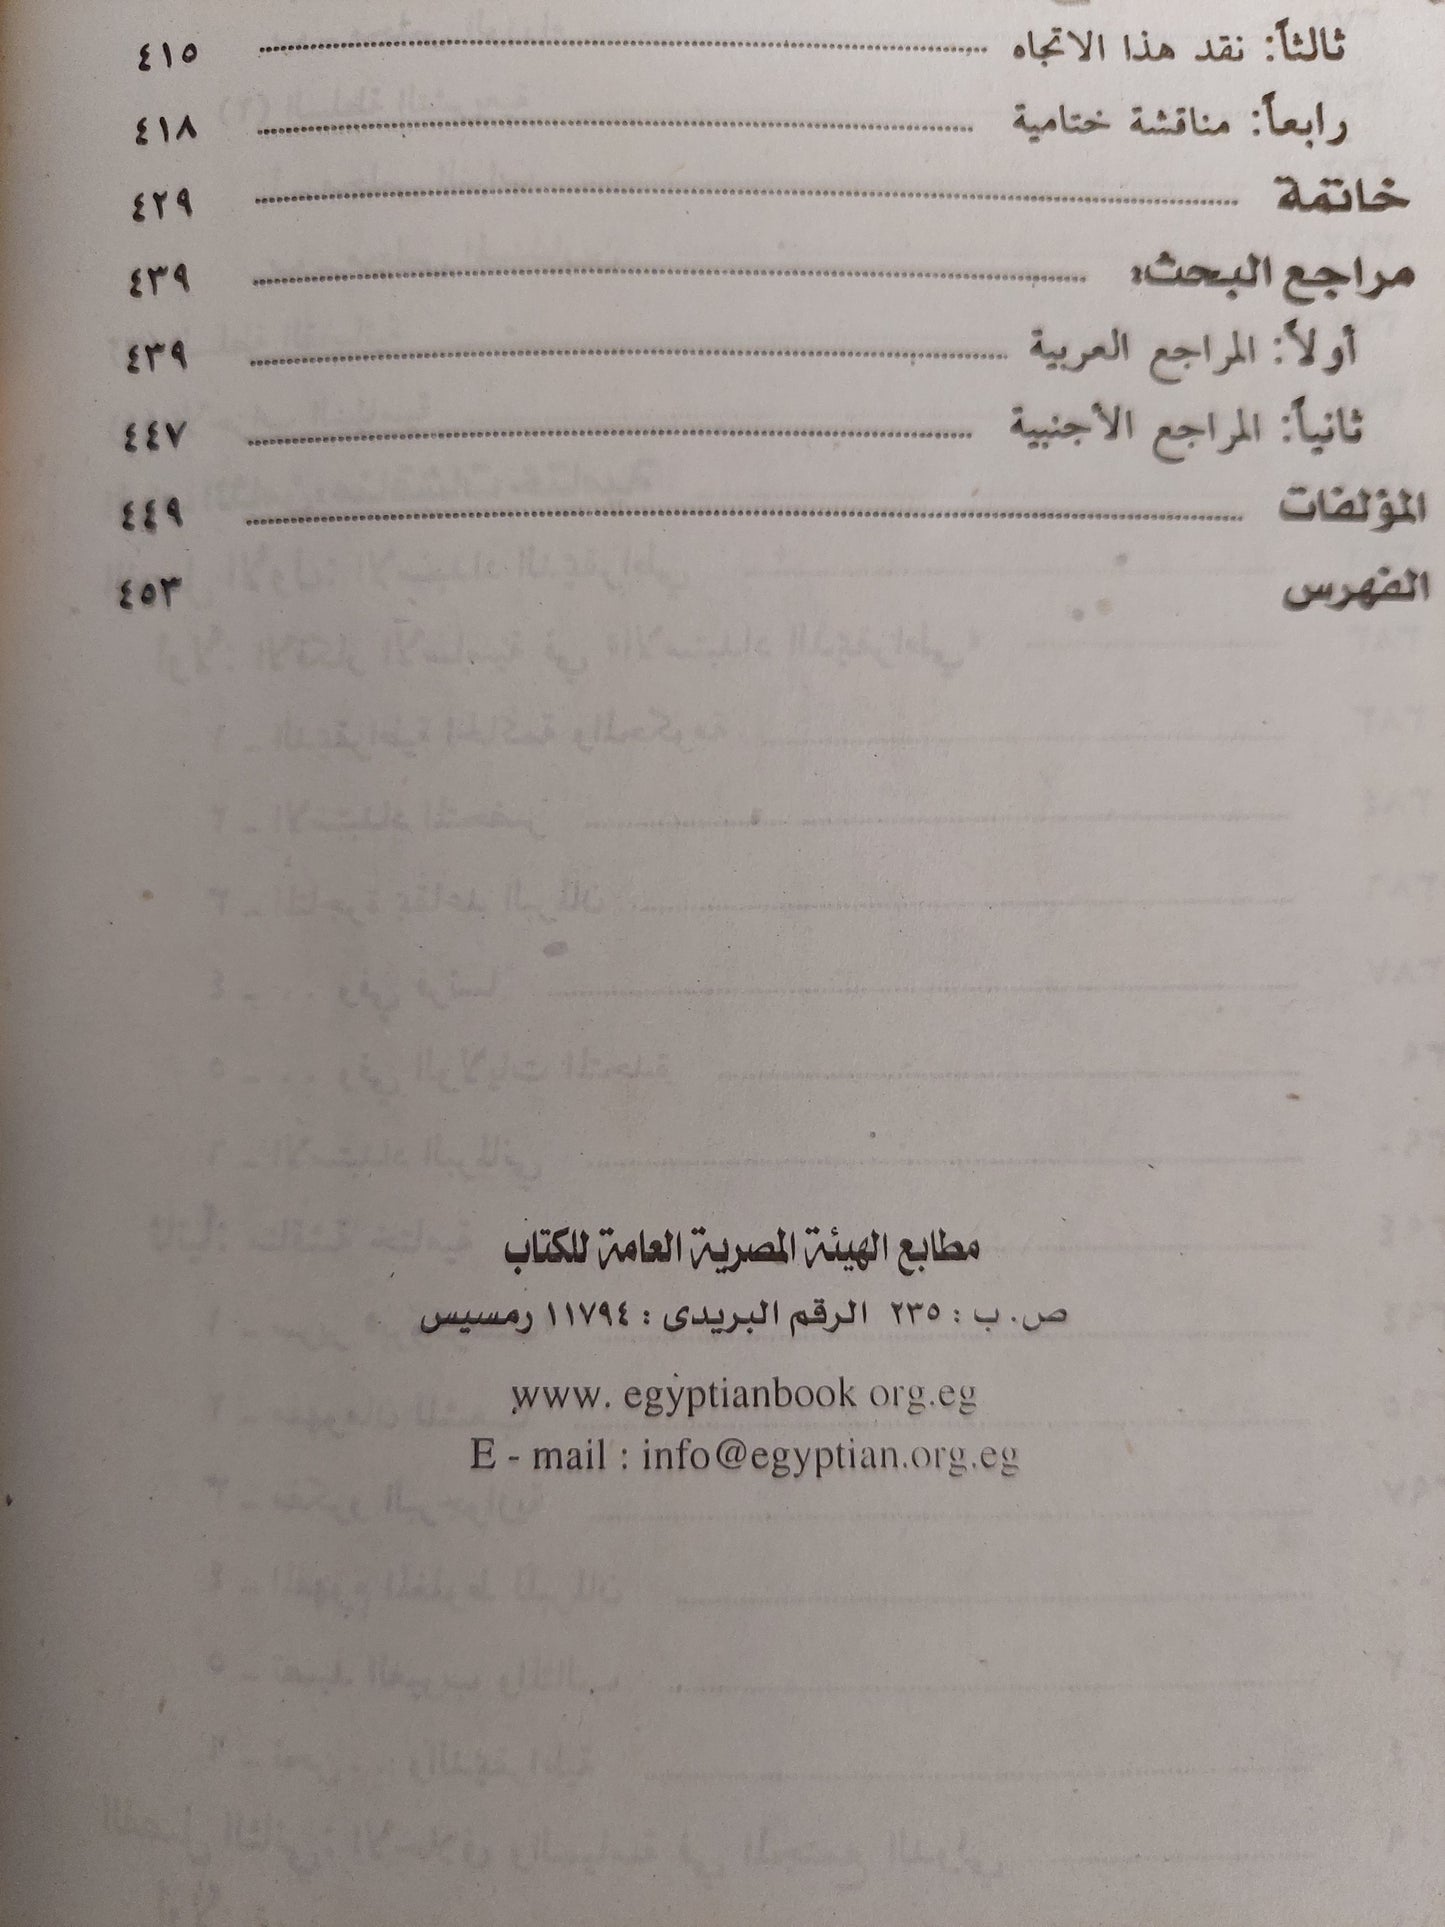 ثالثاً: نقد هذا الاتجاه ٤١٥
رابعاً: مناقشة ختامية ٤١٨
خاتمة ٤٢٩
مراجع البحث: ٤٣٩
أولاً: المراجع العربية ٤٣٩
ثانياً: المراجع الأجنبية ٤٤٧
المؤلفات ٤٤٩
الفهرس ٤٥٣
مطابع الهيئة المصرية العامة للكتاب
ص. ب : ٢٣٥ الرقم البريدى : ١١٧٩٤ رمسيس
www. egyptianbook org.eg
E - mail : info@egyptian.org.eg